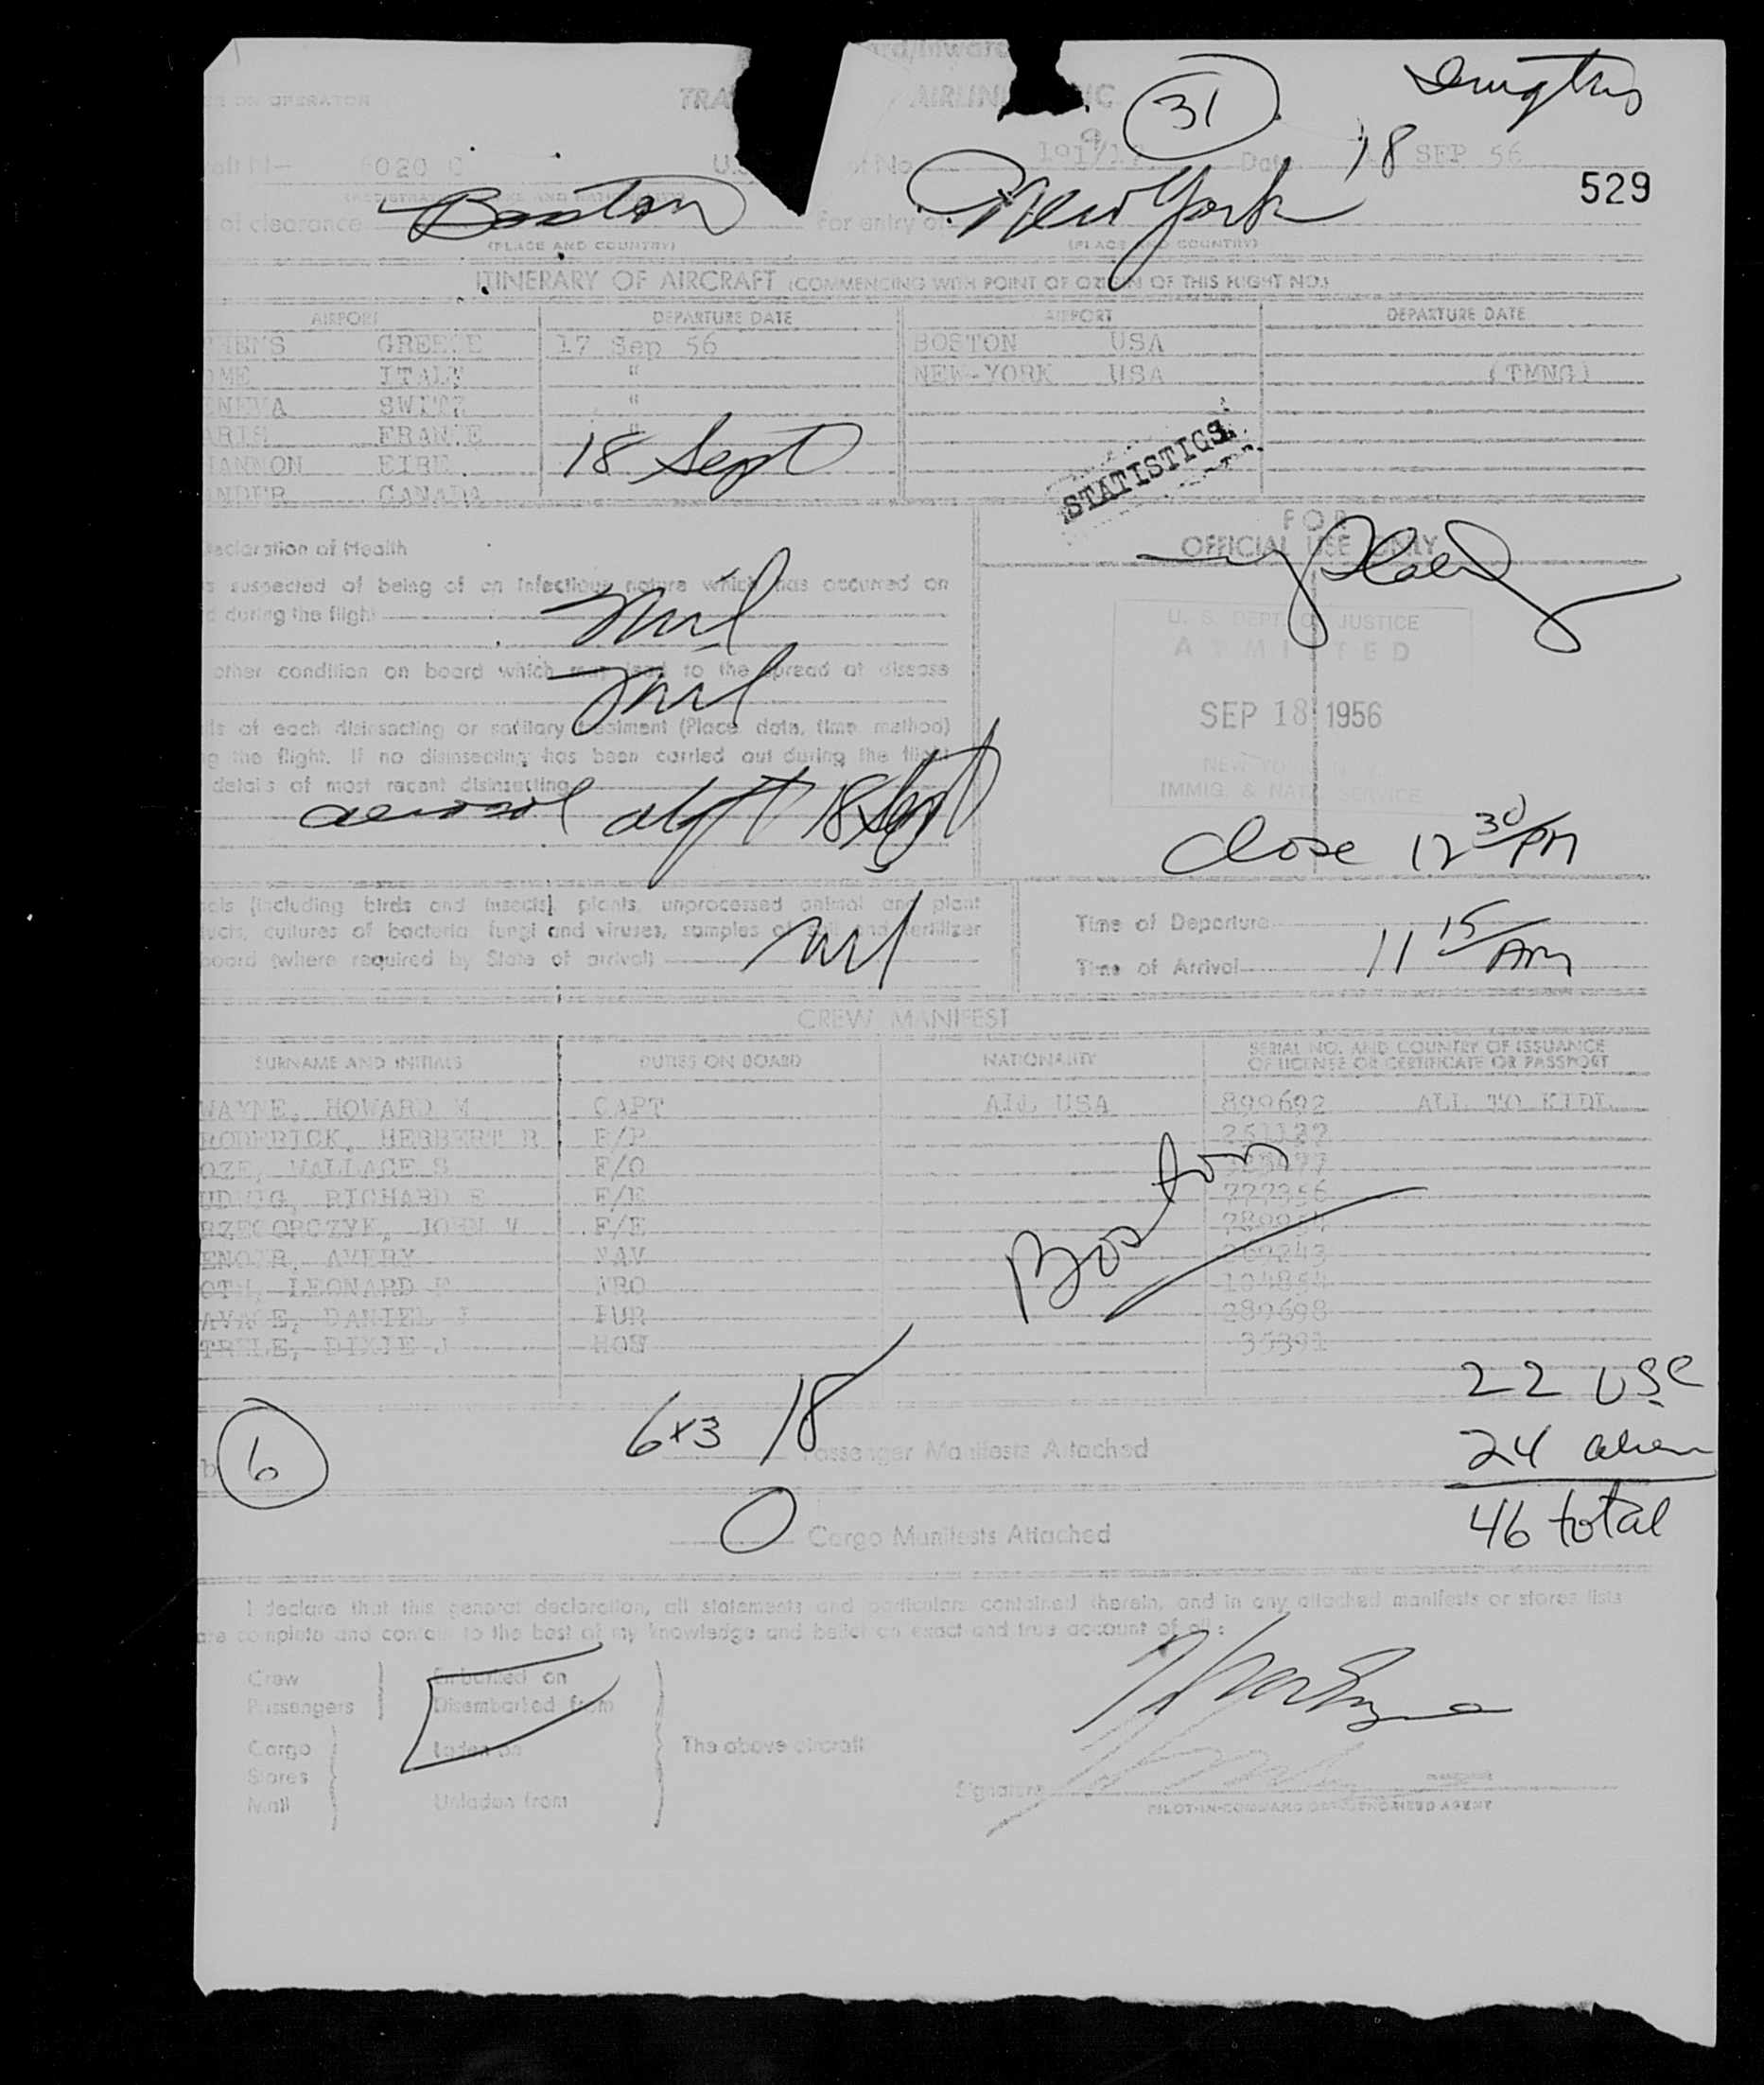 ard/Inward
ON OPERATOR TRA AIRLIN C.
31
6020 C U.S No Date 18 SEP 56
529
of clearance Boston For entry New York
(PLACE AND COUNTRY) (PLACE AND COUNTRY)
ITINERARY OF AIRCRAFT (COMMENCING WITH POINT OF ORIGIN OF THIS FLIGHT NO.)
AIRPORT DEPARTURE DATE AIRPORT DEPARTURE DATE
HENS GREECE 17 Sep 56 BOSTON USA
OME ITALY " NEW-YORK USA (TMNG)
ENEVA SWITZ "
ARIS FRANCE "
HANNON EIRE 18 Sept
ANDER CANADA
STATISTICS
FOR
OFFICIAL USE ONLY
Declaration of Health
s suspected of being of an infectious nature which has occurred on
d during the flight nil
other condition on board which may lead to the spread of disease
nil
ls of each disinsecting or sanitary treatment (Place, date, time, method)
g the flight. If no disinsecting has been carried out during the flight
details of most recent disinsecting
aerosol aloft 18 Sept
U. S. DEPT. OF JUSTICE
ADMITTED
SEP 18 1956
NEW YORK, N. Y.
IMMIG. & NATZ. SERVICE
Close 12 30 PM
als (including birds and insects), plants, unprocessed animal and plant
ucts, cultures of bacteria, fungi and viruses, samples of soil and fertilizer
board (where required by State of arrival) nil
Time of Departure
Time of Arrival 11 15 AM
CREW MANIFEST
SURNAME AND INITIALS DUTIES ON BOARD NATIONALITY SERIAL NO. AND COUNTRY OF ISSUANCE
OF LICENSE OR CERTIFICATE OR PASSPORT
WAYNE, HOWARD M CAPT ALL USA 899692 ALL TO KIDL
RODERICK, HERBERT R F/P
OZE, WALLACE S F/O
UDWIG, RICHARD E F/E 777356
RZEGORCZYK, JOHN V F/E
AVERY NAV
OTH, LEONARD F FRO 104854
AVAGE, DANIEL J PUR 289698
DIXIE J HOS
Boston
22 USC
24 alien
46 total
6
6x3 18 Passenger Manifests Attached
0 Cargo Manifests Attached
I declare that this general declaration, all statements and particulars contained therein, and in any attached manifests or stores lists
are complete and contain to the best of my knowledge and belief an exact and true account of all:
Crew Embarked on
Passengers Disembarked from
Cargo Laden on The above aircraft
Stores
Mail Unladen from
Signature
PILOT-IN-COMMAND OR AUTHORISED AGENT